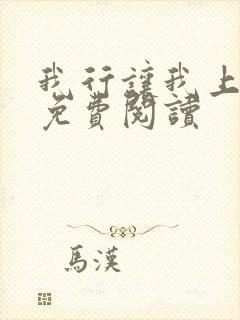 我行讓我上
免費閱讀
馬漢